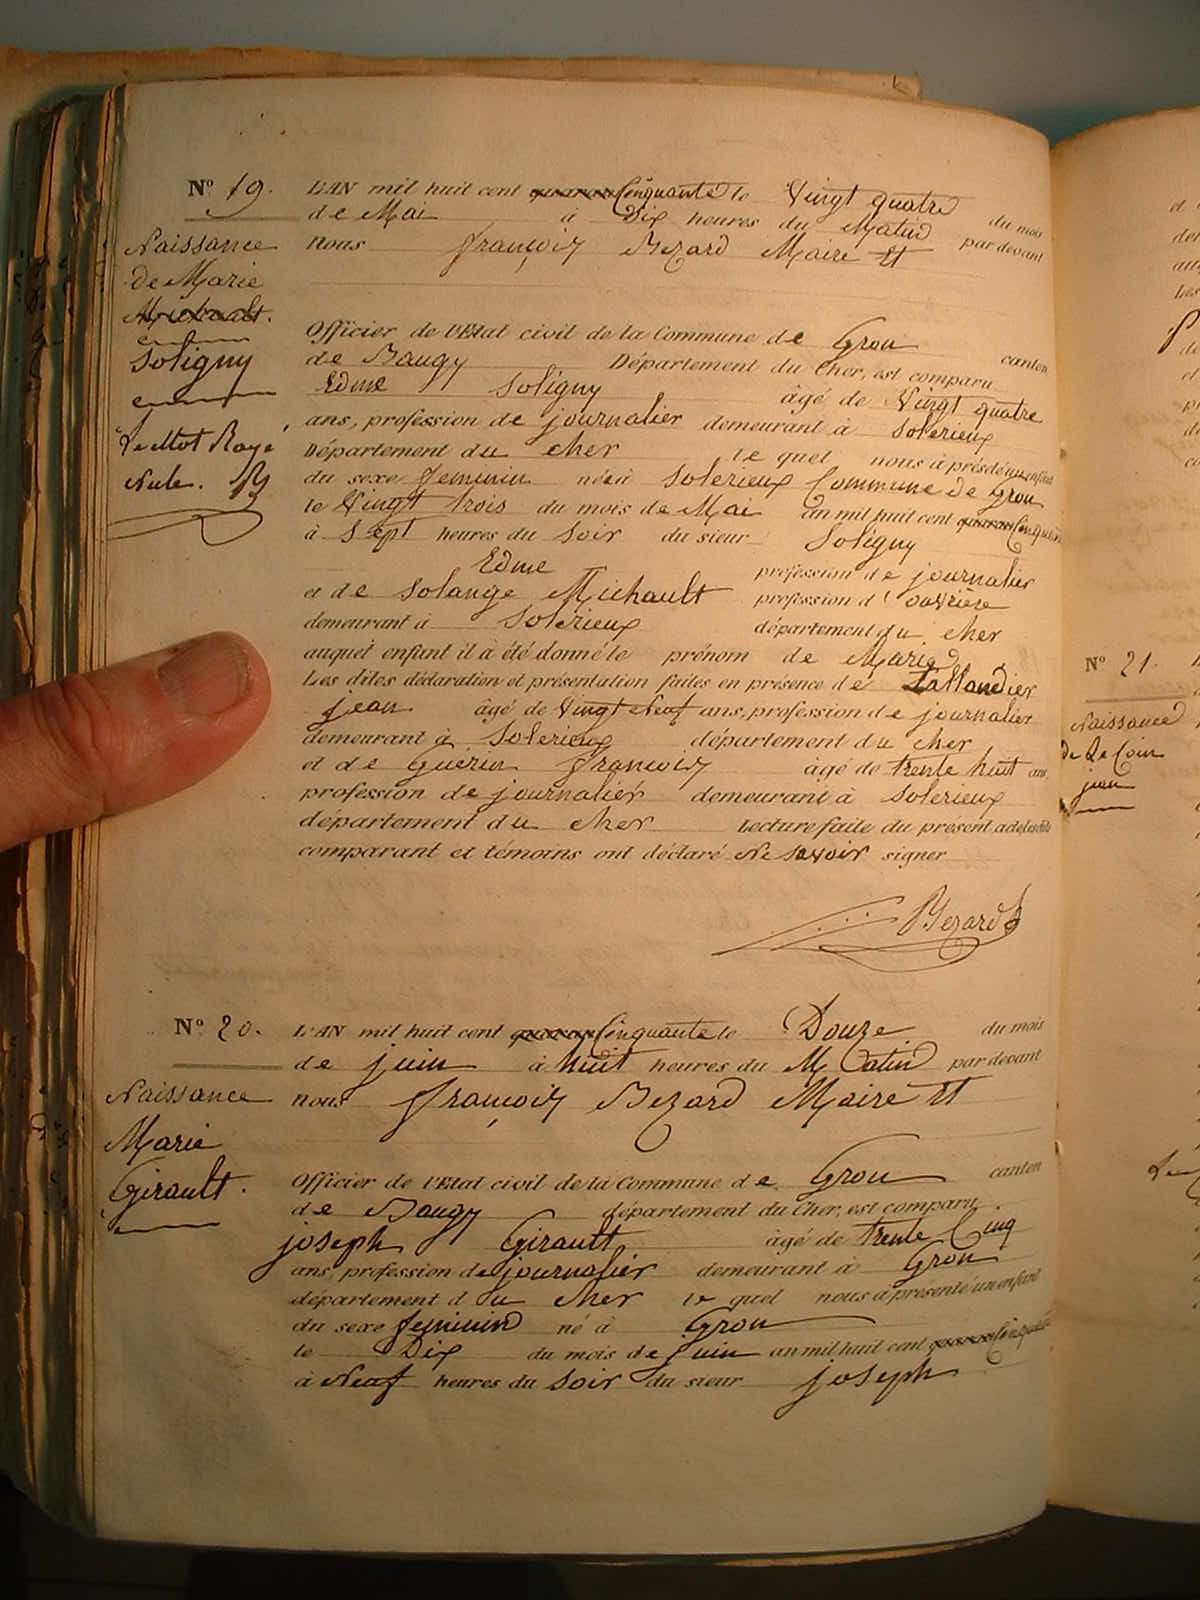 N° 19.
Naissance
de Marie
Michault.
Soligny
Le Mot Rayé
Nule. B
L'AN mil huit cent quarante Cinquante le Vingt quatre du mois
de Mai à Dix heures du Matin par devant
nous françois Bezard Maire Et
Officier de l'Etat civil de la Commune de Gron canton
de Baugy Département du Cher, est comparu
Edme Soligny âgé de Vingt quatre
ans, profession de journalier demeurant à Solerieux
Département du cher le quel nous à présenté un enfant
du sexe feminin né à Solerieux Commune de Gron
le Vingt trois du mois de Mai an mil huit cent quarante Cinquante
à Sept heures du Soir du sieur Soligny
Edme profession de journalier
et de Solange Michault profession d' ouvrière
demeurant à Solérieux département du cher
auquel enfant il à été donné le prénom de Marie
Les dites déclaration et présentation faites en présence de Lallandier
jean âgé de Vingt Neuf ans, profession de journalier
demeurant à Solerieux département du cher
et de Guerin françois âgé de trente huit ans,
profession de journalier demeurant à Solerieux
département du cher Lecture faite du présent acte les dits
comparant et témoins ont déclaré Ne Savoir signer
Bezard
N° 20.
Naissance
Marie
Girault.
L'AN mil huit cent quarante Cinquante le Douze du mois
de juin à huit heures du Matin par devant
nous françois Bezard Maire Et
Officier de l'Etat civil de la Commune de Gron canton
de Baugy département du Cher, est comparu
joseph Girault âgé de trente Cinq
ans, profession de journalier demeurant à Gron
département du cher le quel nous à présenté un enfant
du sexe feminin né à Gron
le Dix du mois de juin an mil huit cent quarante Cinquante
à Neuf heures du Soir du sieur joseph
N° 21.
Naissance
de Le Coin
jean